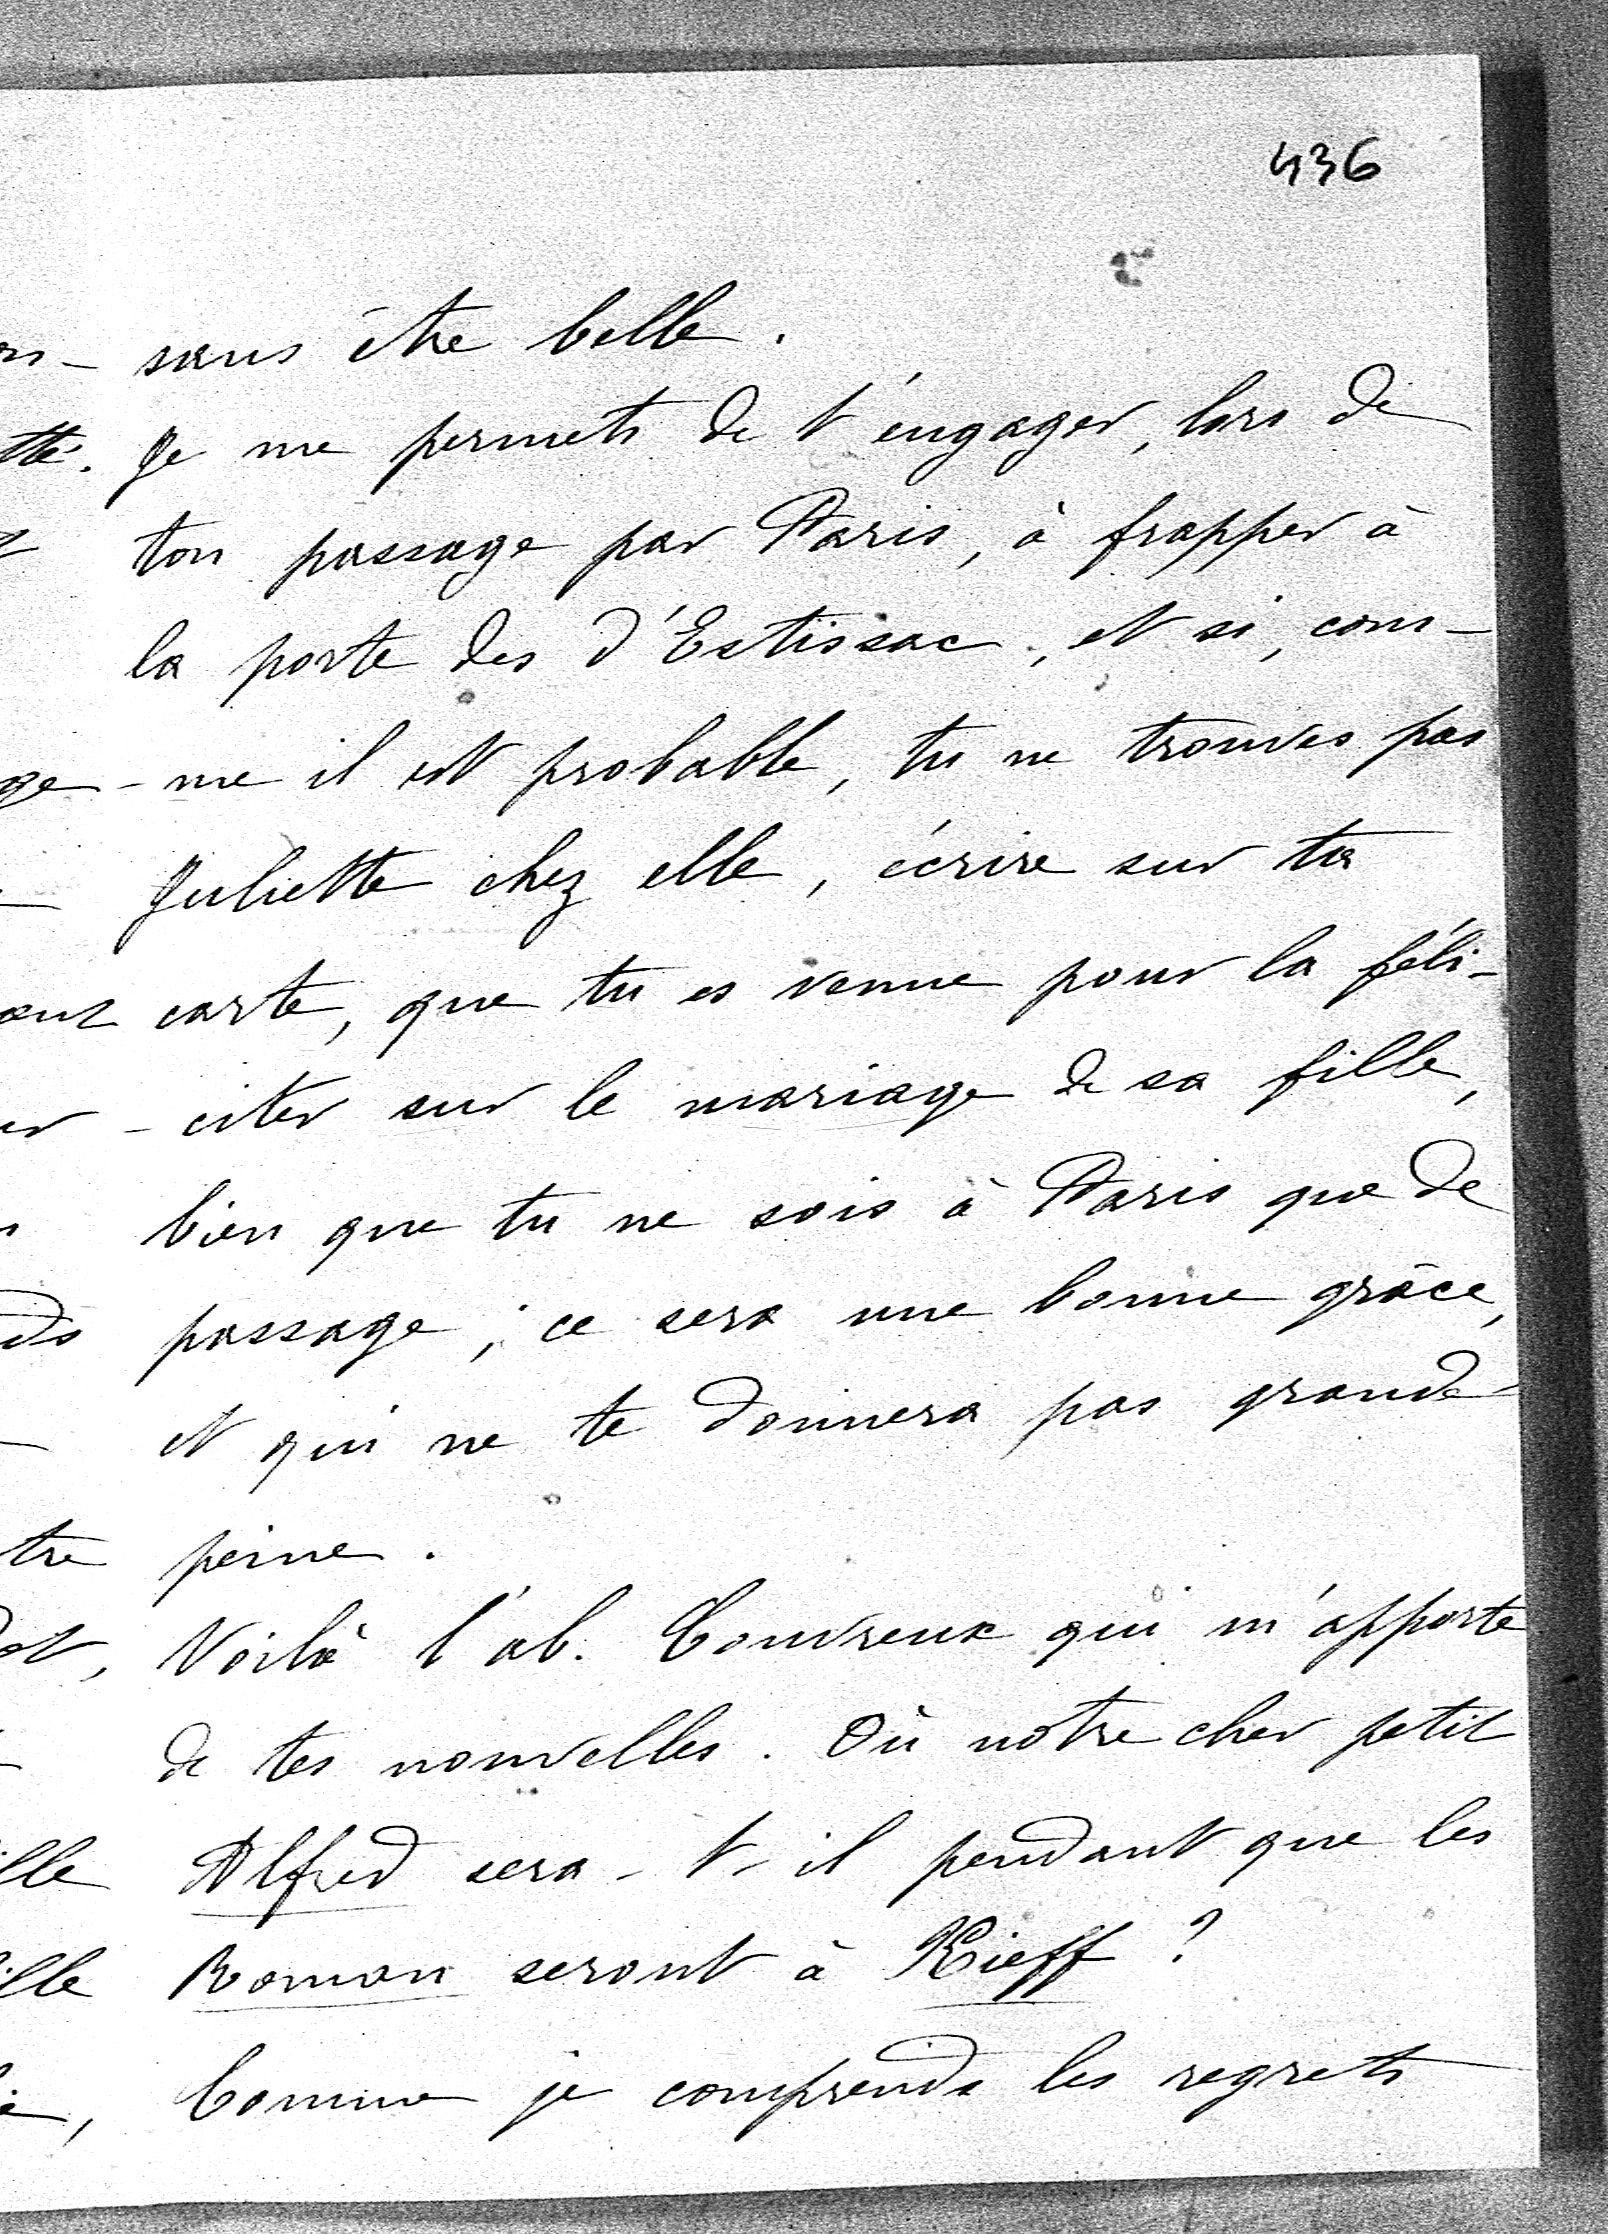 436
sans être belle.
Je me permets de t'engager, lors de
ton passage par Paris, à frapper à
la porte des d'Estissac, et si, com-
-me il est probable, tu ne trouves pas
Juliette chez elle, écrire sur ta
carte, que tu es venue pour la féli-
-citer sur le mariage de sa fille,
bien que tu ne sois à Paris que de
passage; ce sera une bonne grâce,
et qui ne te donnera pas grande
peine.
Voilà l'ab. Couvreux qui m'apporte
de tes nouvelles. Où nôtre cher petit
Alfred sera-t-il pendant que les
Roman seront à Kieff?
Comme je comprends les regrets